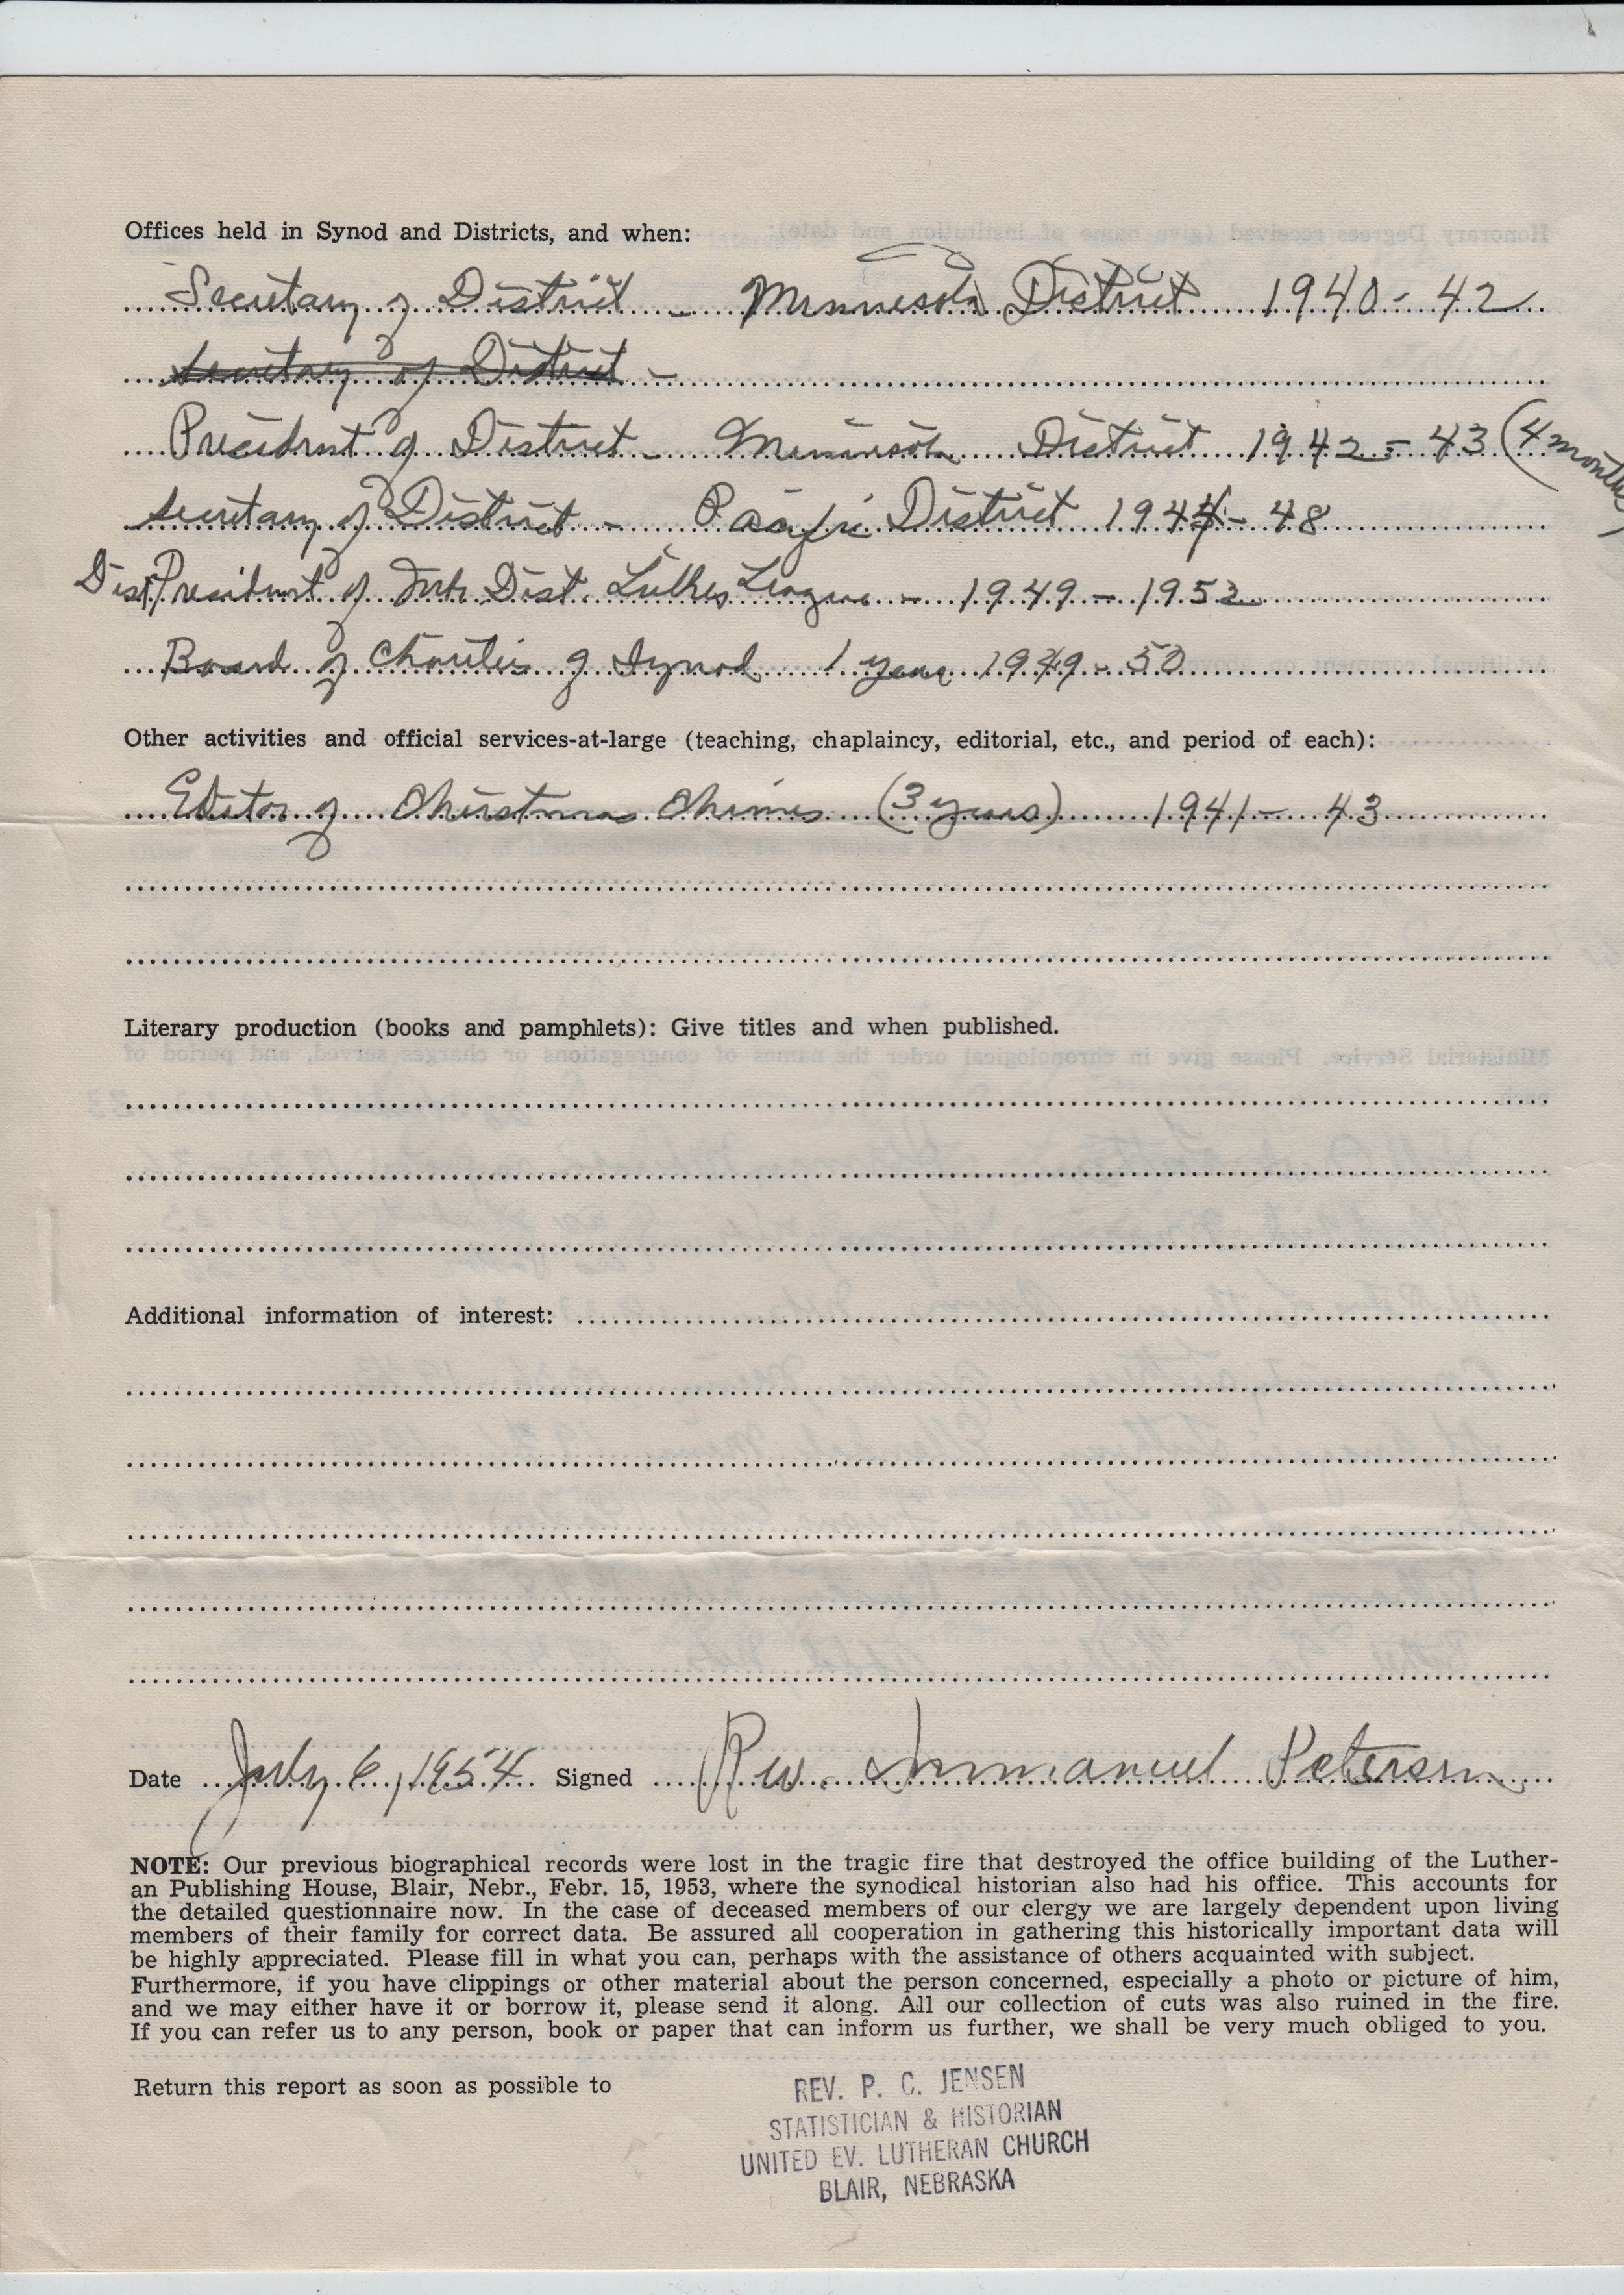 Offices held in Synod and Districts, and when:
Secretary of District - Minnesota District 1940 - 42
Secretary of District -
President of District - Minnesota District 1942 - 43 (4 months)
Secretary of District - Pacific District 1944 - 48
Dist. President of Dist. Luther League - 1949 - 1952
Board of Charities of Synod 1 year 1949 - 50
Other activities and official services-at-large (teaching, chaplaincy, editorial, etc., and period of each):
Editor of Christmas Chimes (3 years) 1941 - 43
Literary production (books and pamphlets): Give titles and when published.
Additional information of interest:
Date July 6, 1954 Signed Rev. Immanuel Petersen
NOTE: Our previous biographical records were lost in the tragic fire that destroyed the office building of the Luther-
an Publishing House, Blair, Nebr., Febr. 15, 1953, where the synodical historian also had his office. This accounts for
the detailed questionnaire now. In the case of deceased members of our clergy we are largely dependent upon living
members of their family for correct data. Be assured all cooperation in gathering this historically important data will
be highly appreciated. Please fill in what you can, perhaps with the assistance of others acquainted with subject.
Furthermore, if you have clippings or other material about the person concerned, especially a photo or picture of him,
and we may either have it or borrow it, please send it along. All our collection of cuts was also ruined in the fire.
If you can refer us to any person, book or paper that can inform us further, we shall be very much obliged to you.
Return this report as soon as possible to
REV. P. C. JENSEN
STATISTICIAN & HISTORIAN
UNITED EV. LUTHERAN CHURCH
BLAIR, NEBRASKA